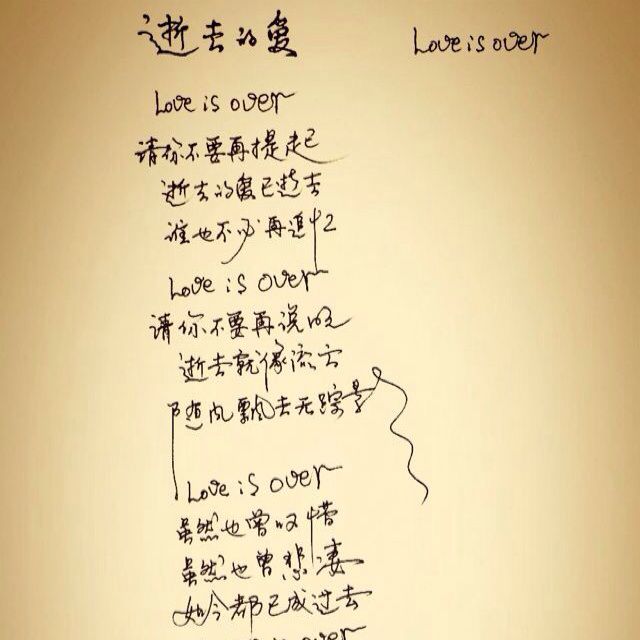 逝去的爱 Love is over
Love is over
请你不要再提起
逝去的爱已逝去
谁也不必再追忆
Love is over
请你不要再说明
逝去就像流云
随风飘去无踪影
Love is over
虽然也曾叹惜
虽然也曾悲凄
如今都已成过去
Love is over